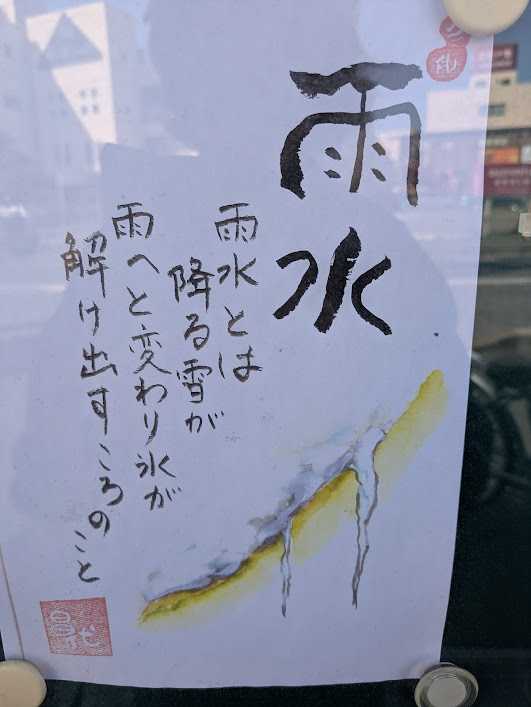 雨水
雨水とは
降る雪が
雨へと変わり氷が
解け出すころの
こと